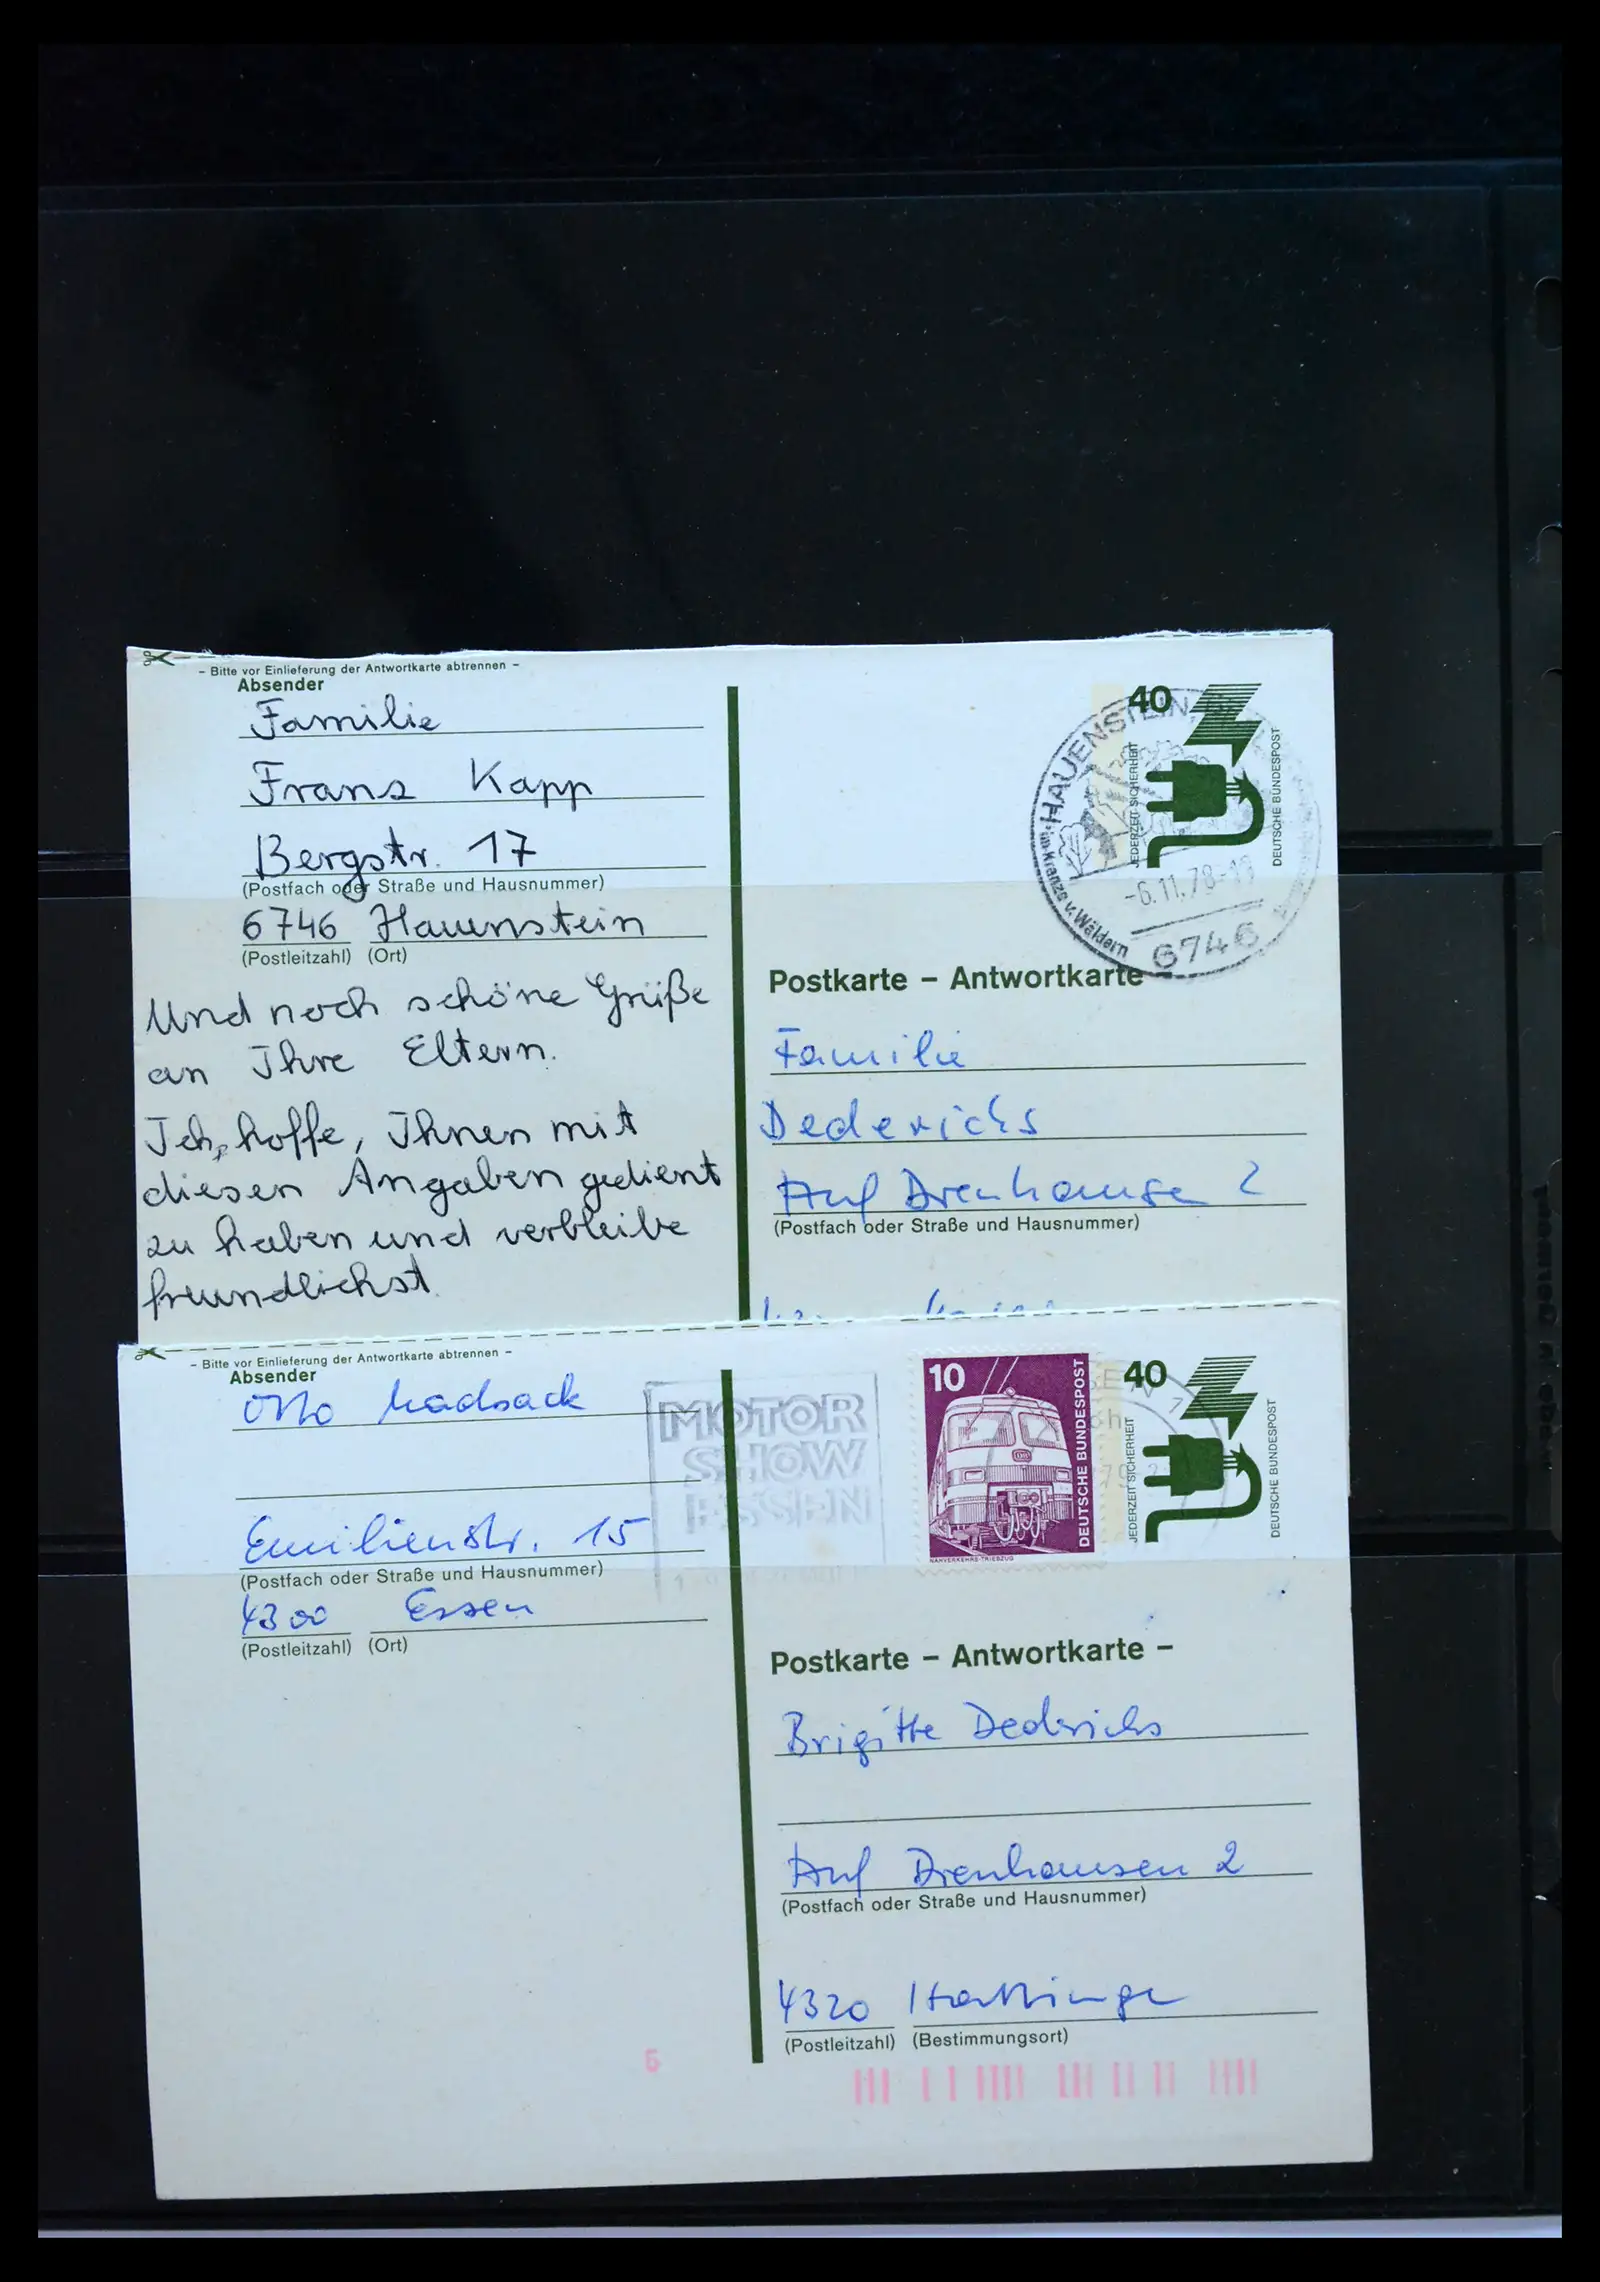 - Bitte vor Einlieferung der Antwortkarte abtrennen -
Absender
Familie
Franz Kapp
Bergstr. 17
(Postfach oder Straße und Hausnummer)
6746 Hauenstein
(Postleitzahl) (Ort)
Und noch schöne Grüße
an Ihre Eltern.
Ich, hoffe, Ihnen mit
diesen Angaben gedient
zu haben und verbleibe
freundlichst.
40
JEDERZEIT SICHERHEIT
DEUTSCHE BUNDESPOST
HAUENSTEIN,
im Kranze v. Wäldern
-6.11.78-
6746
Postkarte – Antwortkarte
Familie
Dederichs
Auf Drenhausen 2
(Postfach oder Straße und Hausnummer)
- Bitte vor Einlieferung der Antwortkarte abtrennen -
Absender
Otto Madsack
Emilienstr. 15
(Postfach oder Straße und Hausnummer)
4300 Essen
(Postleitzahl) (Ort)
MOTOR
SHOW
ESSEN
10
DEUTSCHE BUNDESPOST
NAHVERKEHRS-TRIEBZUG
40
JEDERZEIT SICHERHEIT
DEUTSCHE BUNDESPOST
Postkarte – Antwortkarte –
Brigitte Dederichs
Auf Drenhausen 2
(Postfach oder Straße und Hausnummer)
4320 Hattingen
(Postleitzahl) (Bestimmungsort)